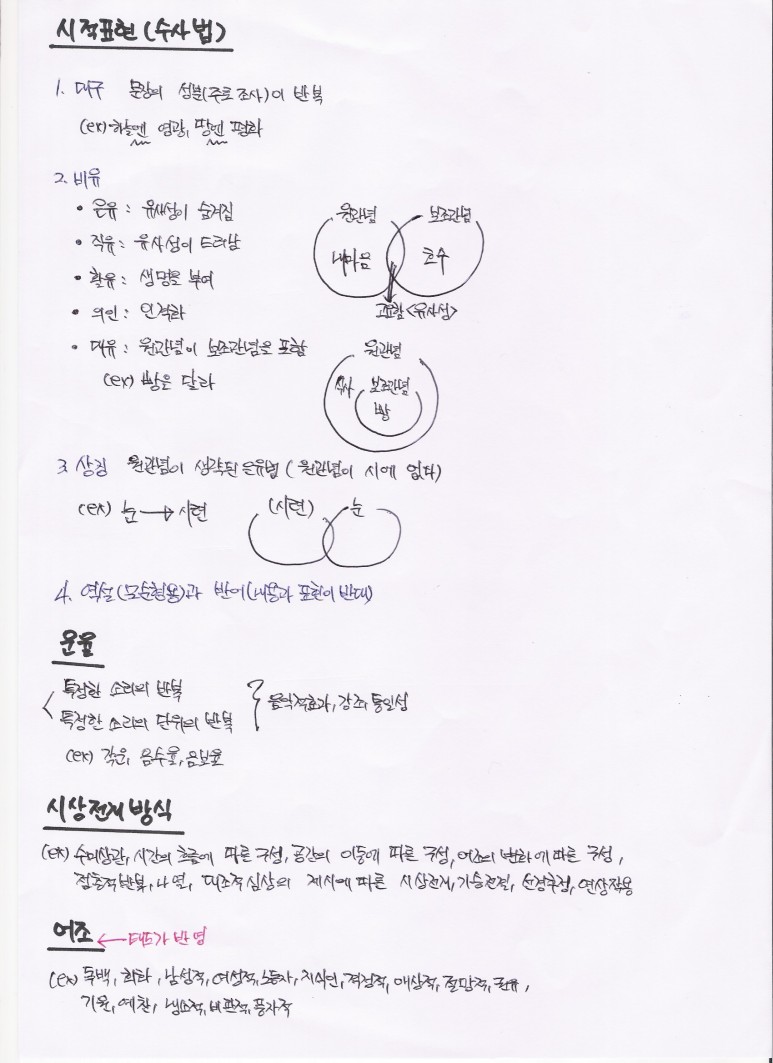 시적표현(수사법)
1. 대구 문장의 성분(주로 조사)이 반복
(ex) 하늘엔 영광, 땅엔 평화
2. 비유
• 은유 : 유사성이 숨겨짐
• 직유 : 유사성이 드러남
• 활유 : 생명을 부여
• 의인 : 인격화
• 대유 : 원관념이 보조관념을 포함
(ex) 빵은 달라
원관념 보조관념
내마음 호수
고요함<유사성>
원관념
식사 보조관념
빵
3. 상징 원관념이 생략된 은유법 (원관념이 시에 없다)
(ex) 눈 → 시련 (시련) 눈
4. 역설(모순형용)과 반어(내용과 표현이 반대)
운율
특정한 소리의 반복
특정한 소리의 단위의 반복
음악적효과, 강조, 통일성
(ex) 각운, 음수율, 음보율
시상전개 방식
(ex) 수미상관, 시간의 흐름에 따른 구성, 공간의 이동에 따른 구성, 어조의 변화에 따른 구성,
점층적반복, 나열, 대조적 심상의 제시에 따른 시상전개, 기승전결, 선경후정, 연상작용
어조 ← 태도가 반영
(ex) 독백, 회화, 남성적, 여성적, 노동자, 지식인, 격정적, 애상적, 절망적, 권유,
기원, 예찬, 냉소적, 비판적, 풍자적